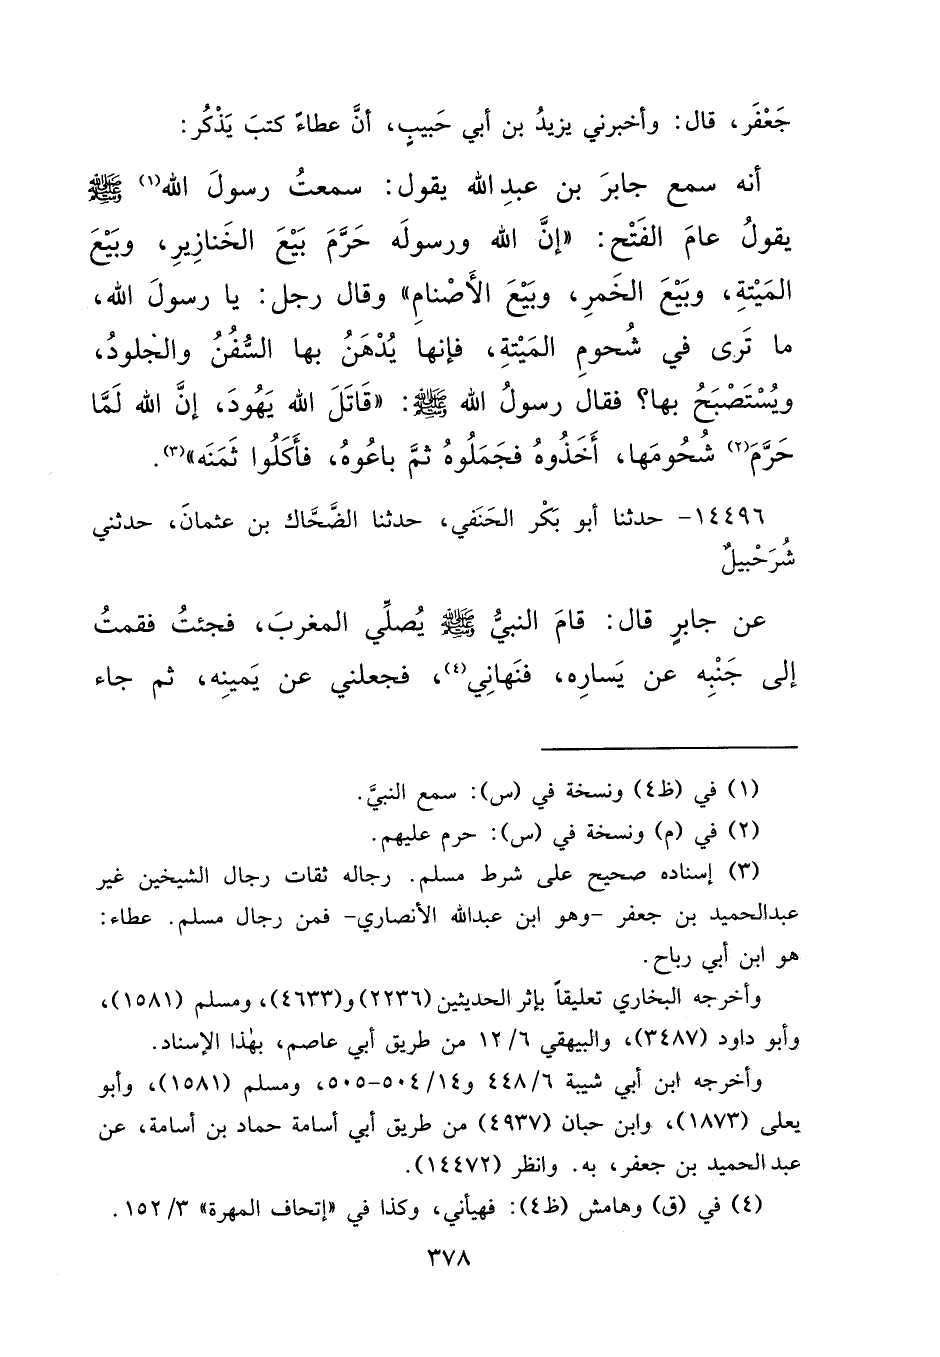 جَعْفَر، قال: وأخبرني يزيدُ بن أبي حَبيبٍ، أنَّ عطاءً كتبَ يَذْكُر:
أنه سمع جابرَ بن عبدِالله يقول: سمعتُ رسولَ الله(١) ﷺ
يقولُ عامَ الفَتْح: «إنَّ الله ورسولَه حَرَّمَ بَيْعَ الخَنازيرِ، وبَيْعَ
المَيْتةِ، وبَيْعَ الخَمرِ، وبَيْعَ الأَصْنامِ» وقال رجل: يا رسولَ الله،
ما تَرى في شُحومِ المَيْتةِ، فإنها يُدْهَنُ بها السُّفُنُ والجُلودُ،
ويُسْتَصْبَحُ بها؟ فقال رسولُ الله ﷺ: «قَاتَلَ الله يَهُودَ، إنَّ الله لَمَّا
حَرَّمَ(٢) شُحُومَها، أَخَذُوهُ فجَمَلُوهُ ثمَّ باعُوهُ، فأَكَلُوا ثَمَنَه»(٣).
١٤٤٩٦- حدثنا أبو بَكْر الحَنَفي، حدثنا الضَّحَّاك بن عثمانَ، حدثني
شُرَحْبيلٌ
عن جابرٍ قال: قامَ النبيُّ ﷺ يُصلِّي المغربَ، فجئتُ فقمتُ
إلى جَنْبِه عن يَسارِه، فنَهانِي(٤)، فجعلني عن يَمينِه، ثم جاء
(١) في (ظ٤) ونسخة في (س): سمع النبيَّ.
(٢) في (م) ونسخة في (س): حرم عليهم.
(٣) إسناده صحيح على شرط مسلم. رجاله ثقات رجال الشيخين غير
عبدالحميد بن جعفر -وهو ابن عبدالله الأنصاري- فمن رجال مسلم. عطاء:
هو ابن أبي رباح.
وأخرجه البخاري تعليقاً بإثر الحديثين (٢٢٣٦) و(٤٦٣٣)، ومسلم (١٥٨١)،
وأبو داود (٣٤٨٧)، والبيهقي ١٢/٦ من طريق أبي عاصم، بهٰذا الإسناد.
وأخرجه ابن أبي شيبة ٤٤٨/٦ و٥٠٤/١٤-٥٠٥، ومسلم (١٥٨١)، وأبو
يعلى (١٨٧٣)، وابن حبان (٤٩٣٧) من طريق أبي أسامة حماد بن أسامة، عن
عبدالحميد بن جعفر، به. وانظر (١٤٤٧٢).
(٤) في (ق) وهامش (ظ٤): فهيأني، وكذا في «إتحاف المهرة» ١٥٢/٣.
٣٧٨